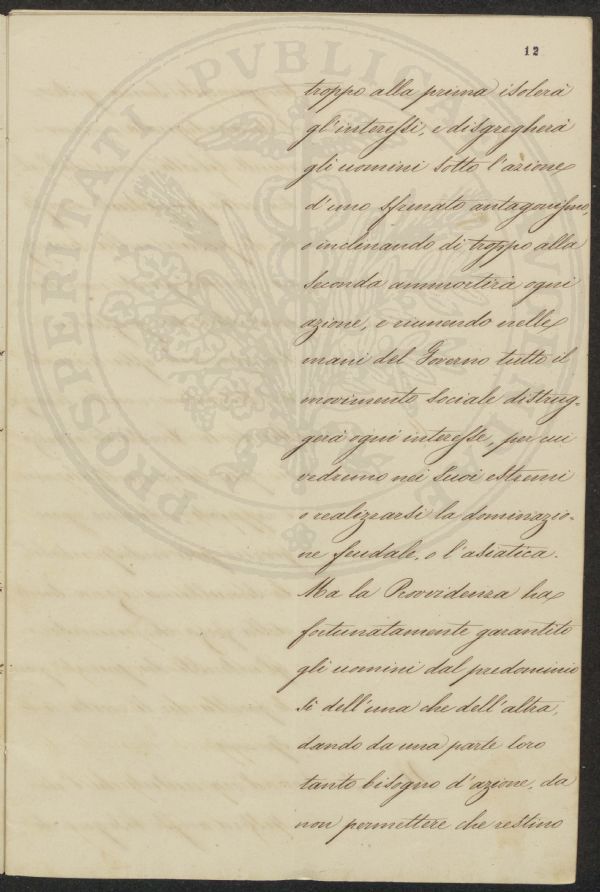 12
troppo alla prima isolerà
gl'interessi, e disgregherà
gli uomini sotto l'azione
d'uno sfrenato antagonismo,
e inclinando di troppo alla
seconda ammortirà ogni
azione, e riunendo nelle
mani del Governo tutto il
movimento sociale distrug-
gerà ogni interesse, per cui
vedremo nei suoi estremi
o realizzarsi la dominazio-
ne feudale, o l'asiatica.
Ma la Provvidenza ha
fortunatamente garantito
gli uomini dal predominio
sì dell'una che dell'altra,
dando da una parte loro
tanto bisogno d'azione, da
non permettere che restino
PROSPERITATI PVBLICAE